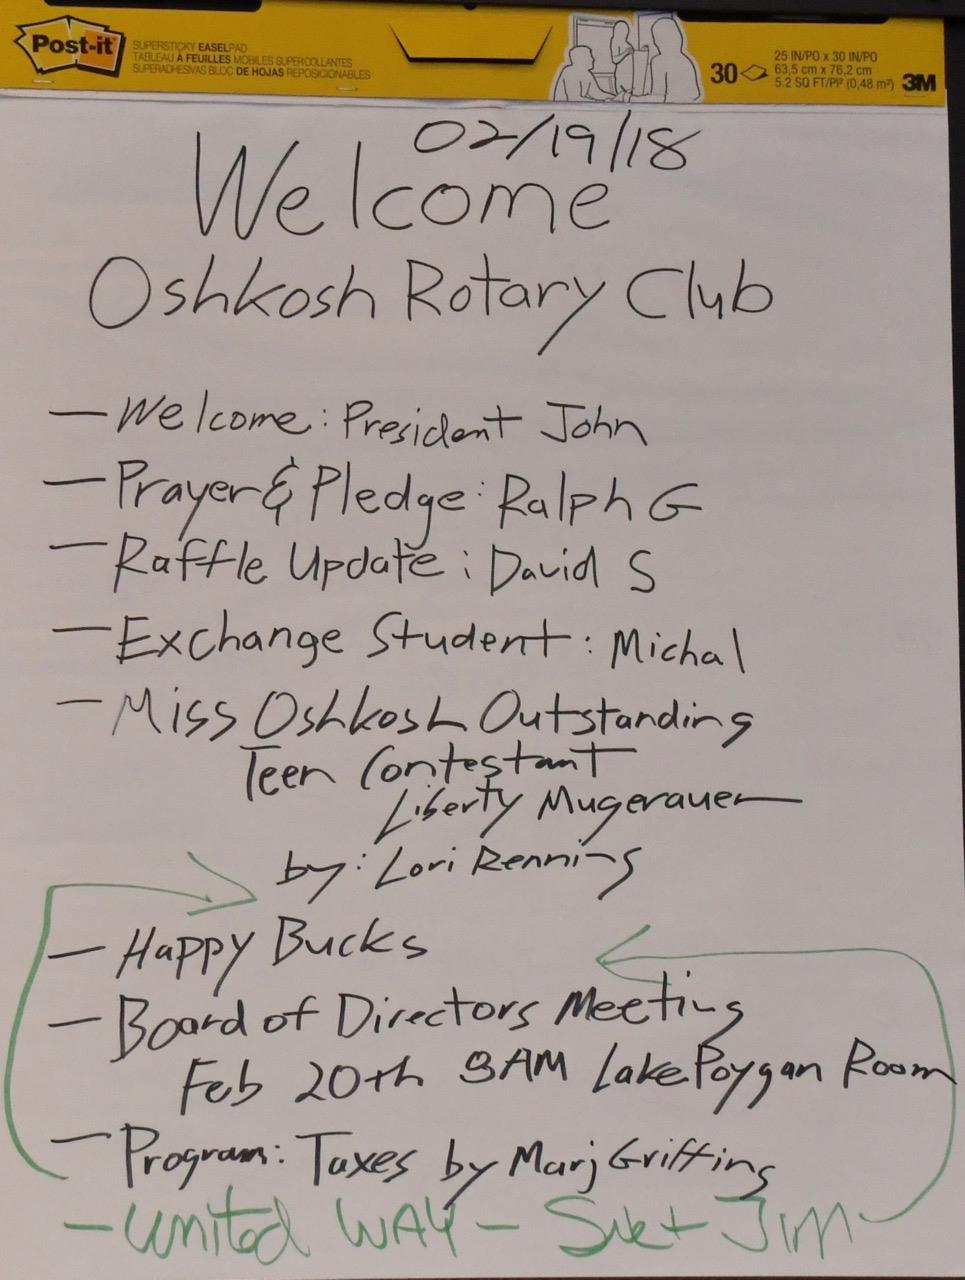 Post-it
SUPERSTICKY EASEL PAD
TABLEAU À FEUILLES MOBILES SUPERCOLLANTES
SUPERADHESIVAS BLOC DE HOJAS REPOSICIONABLES
30
25 IN/PO x 30 IN/PO
63,5 cm x 76,2 cm
5.2 SQ FT/PI² (0,48 m²)
3M
02/19/18
Welcome
Oshkosh Rotary Club
— Welcome: President John
— Prayer & Pledge: Ralph G
— Raffle Update: David S
— Exchange Student: Michal
— Miss Oshkosh Outstanding
Teen Contestant
Liberty Mugerauer
by: Lori Renning
— Happy Bucks
— Board of Directors Meeting
Feb 20th 8AM Lake Poygan Room
— Program: Taxes by Marj Griffing
— United WAY — Sue + Jim